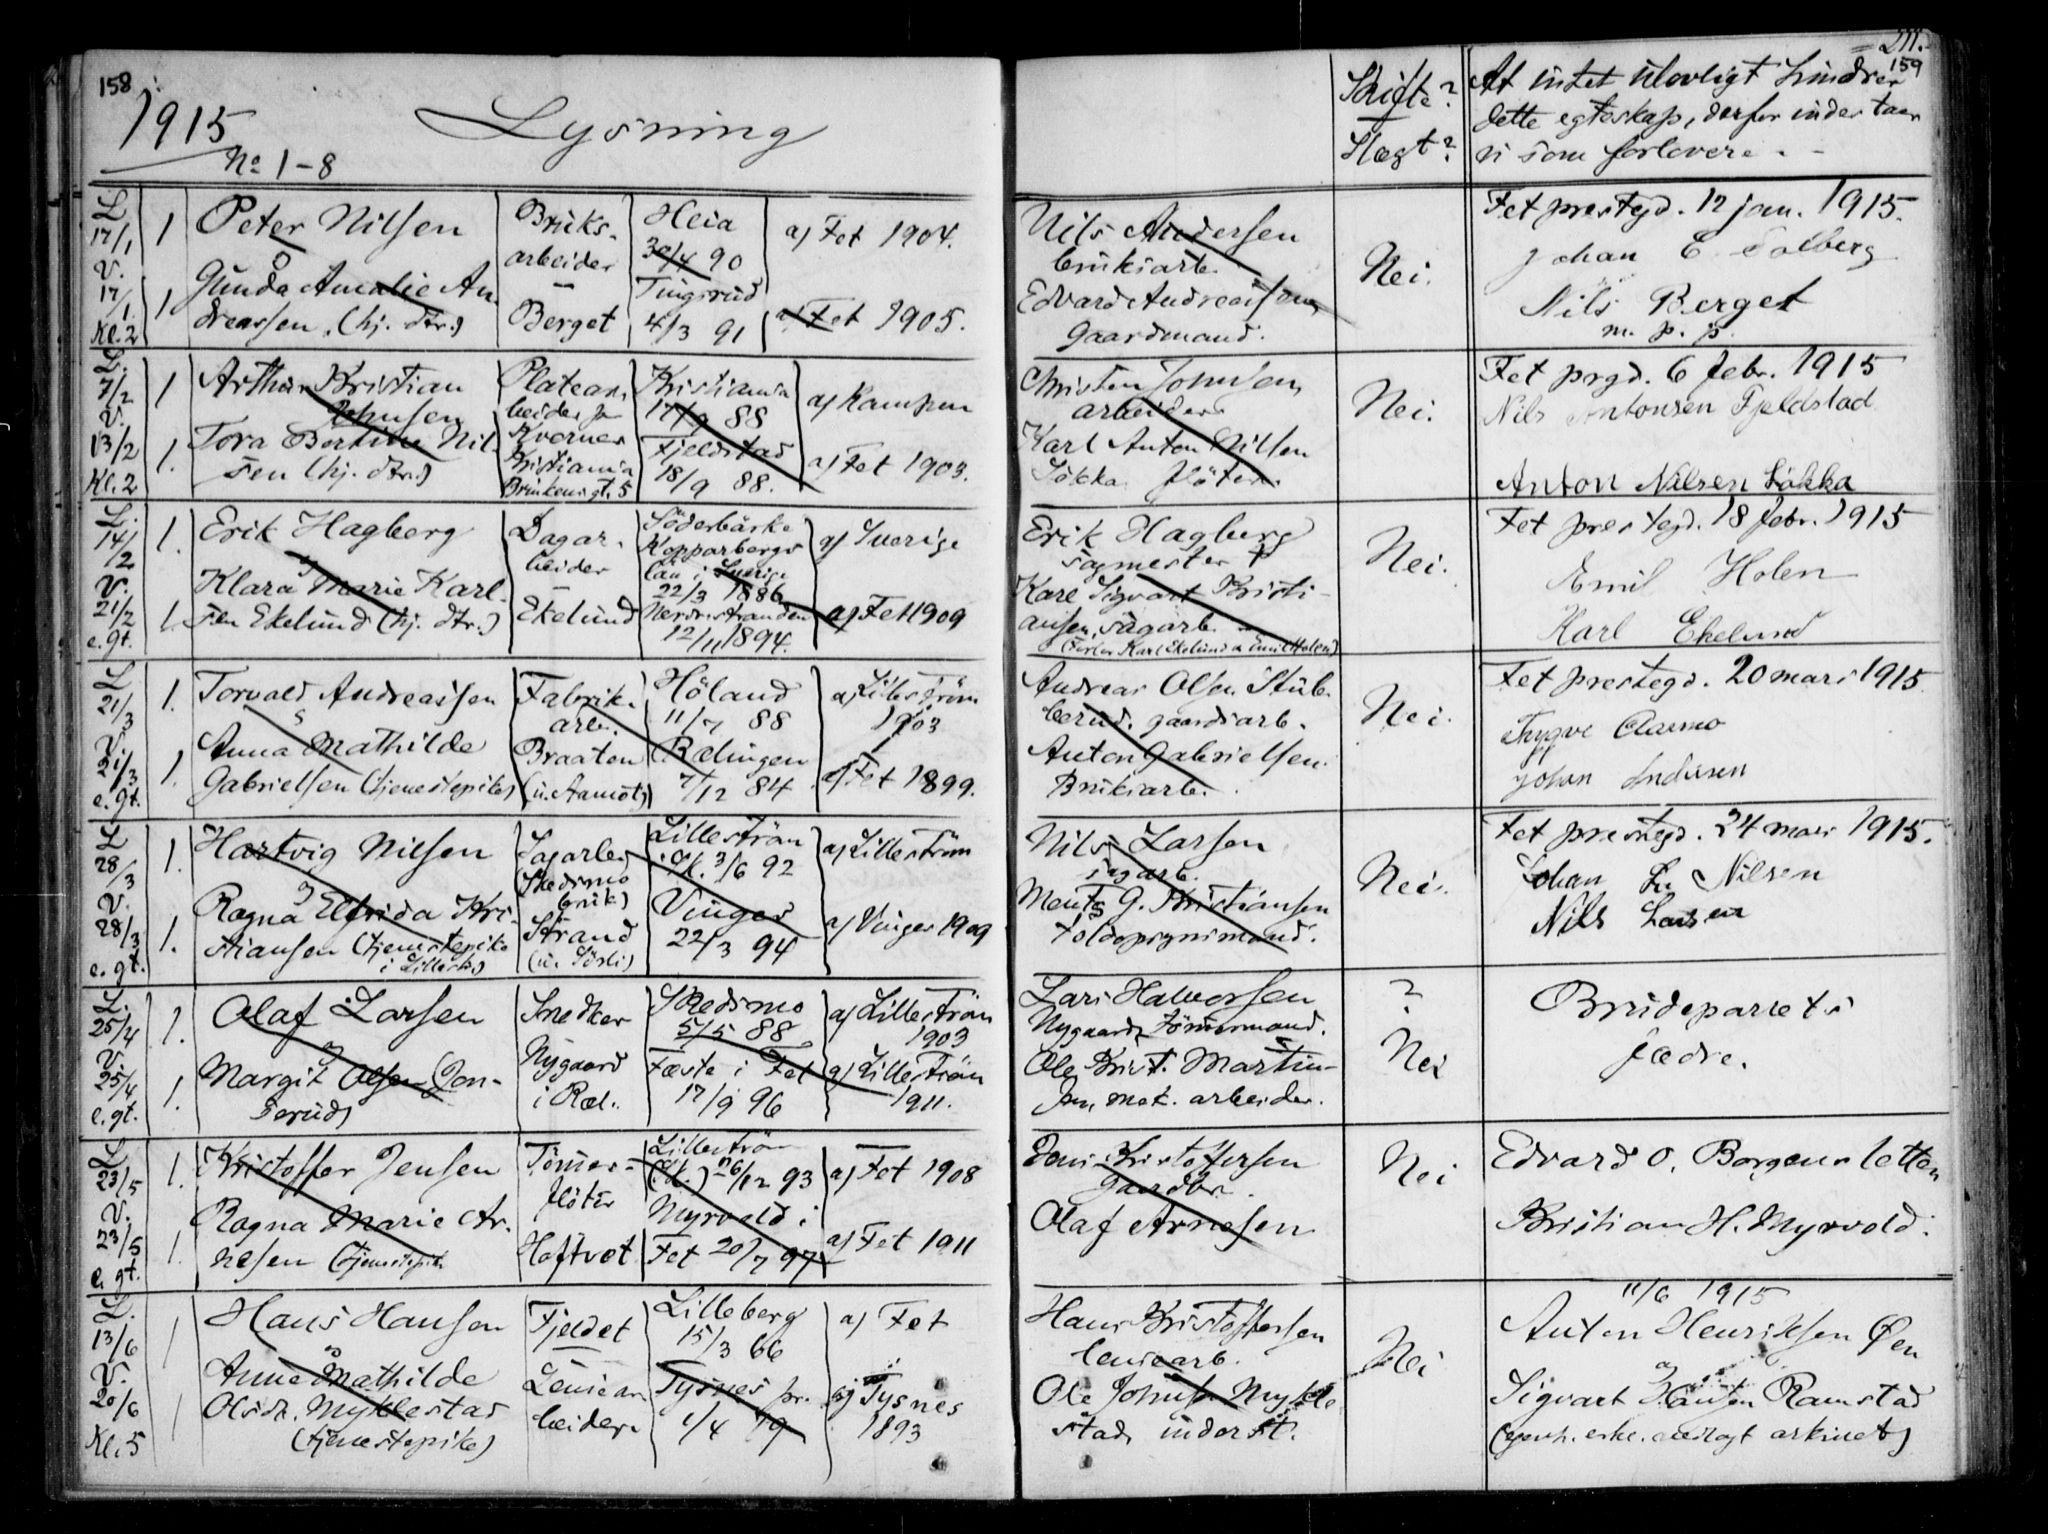 158
1915 Lysning
No 1-8
L
17/1
V.
17/1.
Kl. 2
1
1
Peter Nilsen
og
Gunda Amalie An-
dreassen (hj. dtr.)
Bruks-
arbeider
Berget
Heia
30/4 90
Tingsrud
4/3 91
a) Fet 1904.
a) Fet 1905.
L.
7/2
V.
13/2
Kl. 2
1
1.
Arthur Kristian
Johnsen
Tora Bertine Nil-
sen (hj. dtr.)
Platear-
beider på
Kværner
Kristiania
Brinkens gt. 5
Kristiania
17/9 88
Fjeldstad
18/9 88.
a) Kampen
a) Fet 1903.
L.
14/2
V.
21/2
e. gt.
1.
1.
Erik Hagberg
og
Klara Marie Karl-
sen Ekelund (hj. dtr.)
Dagar-
beider
Ekelund
Söderbärke
Kopparbergs
län i Sverige
22/3 1886
Nerdrestranden
12/11 1894.
a) Sverige
a) Fet 1909
L
21/3
V.
21/3
e. gt.
1.
1.
Torvald Andreassen
og
Anna Mathilde
Gabrielsen (tjenestepike)
Fabrik-
arb.
Braaten
(u. Aamot)
Höland
11/7 88
Rælingen
7/12 84
a) Lillestrøm
1903
a) Fet 1899.
L
28/3
V.
28/3
e. gt.
1.
1.
Hartvig Nilsen
og
Ragna Elfrida Kri-
stiansen (tjenestepike
i Lillestr.)
Sagarb.
(Skedsmo
bruk)
Strand
(u. Sörli)
Lillestrøm
3/6 92
Vinger
22/3 94
a) Lillestrøm
a) Vinger 1909
L.
25/4
V.
25/4
e. gt.
1.
1.
Olaf Larsen
og
Margit Olsen (Jon-
serud)
Snedker
Nygaard
i Ræl.
Skedsmo
5/5 88
Fæste i Fet
17/9 96
a) Lillestrøm
1903
a) Lillestrøm
1911.
L
23/5
V.
23/5
e. gt.
1.
1.
Kristoffer Jensen
Ragna Marie Ar-
nesen (tjenestepik
Tömmer-
flöter
Hoftvet
Lillestrøm
26/12 93
Myrvold i
Fet 20/7 97
a) Fet 1908
a) Fet 1911
L.
13/6
V.
20/6
Kl. 5
1
1
Hans Hansen
og
Anne Mathilde
Olsdr. Myklestad
(tjenestepike)
Fjeldet
Lensear-
beider
Lilleberg
15/3 66
Tysnes pr.
1/4 79
a) Fet
a) Tysnes
1893
211.
159
Skifte?
Slegt?
At intet ulovligt hindrer
dette egteskap, derfor indestaar
vi som forlovere.
Nils Andersen
bruksarb.
Edvard Andreassen
Gaardmand.
Nei.
Fet prestegd. 12 jan. 1915.
Johan E. Solberg
Nils Berget
m. p. p.
Christen Johnsen
arbeider
Karl Anton Nilsen
Løkka fløter
Nei.
Fet prgd. 6 febr. 1915
Nils Antonsen Fjeldstad
Anton Nilsen Løkka
Erik Hagberg
sagmester
Karl Sigvart Kristi-
ansen, sagarb.
(Forlov. Karl Ekelund & Emil Holen)
Nei.
Fet prestegd. 18 febr. 1915
Emil Holen
Karl Ekelund
Andreas Olsen Stub-
berud, gaardsarb.
Anton Gabrielsen
Bruksarb.
Nei.
Fet prestegd. 20 mars 1915
Trygve Aamo
Johan
Nils Larsen
sagarb.
Mentz G. Kristiansen
toldopsynsmand.
Nei.
Fet prestegd. 24 mars 1915.
Johan Nilsen
Nils Larsen
Lars Halvorsen
Nygaard, Tömmermand.
Ole Krist. Martin-
sen, mek. arbeider.
?
Nei
Brudeparrets
fædre.
Jens Kristoffersen
gaardbr.
Olaf Arnesen
Nei
Edvard O. Borgersletten
Kristian H. Myrvold.
Hans Kristoffersen
lensearb.
Ole Johnsen Mykle-
stad, inderst.
Nei
11/6 1915
Anton Henriksen Øen
Sigvart Hansen Ramstad